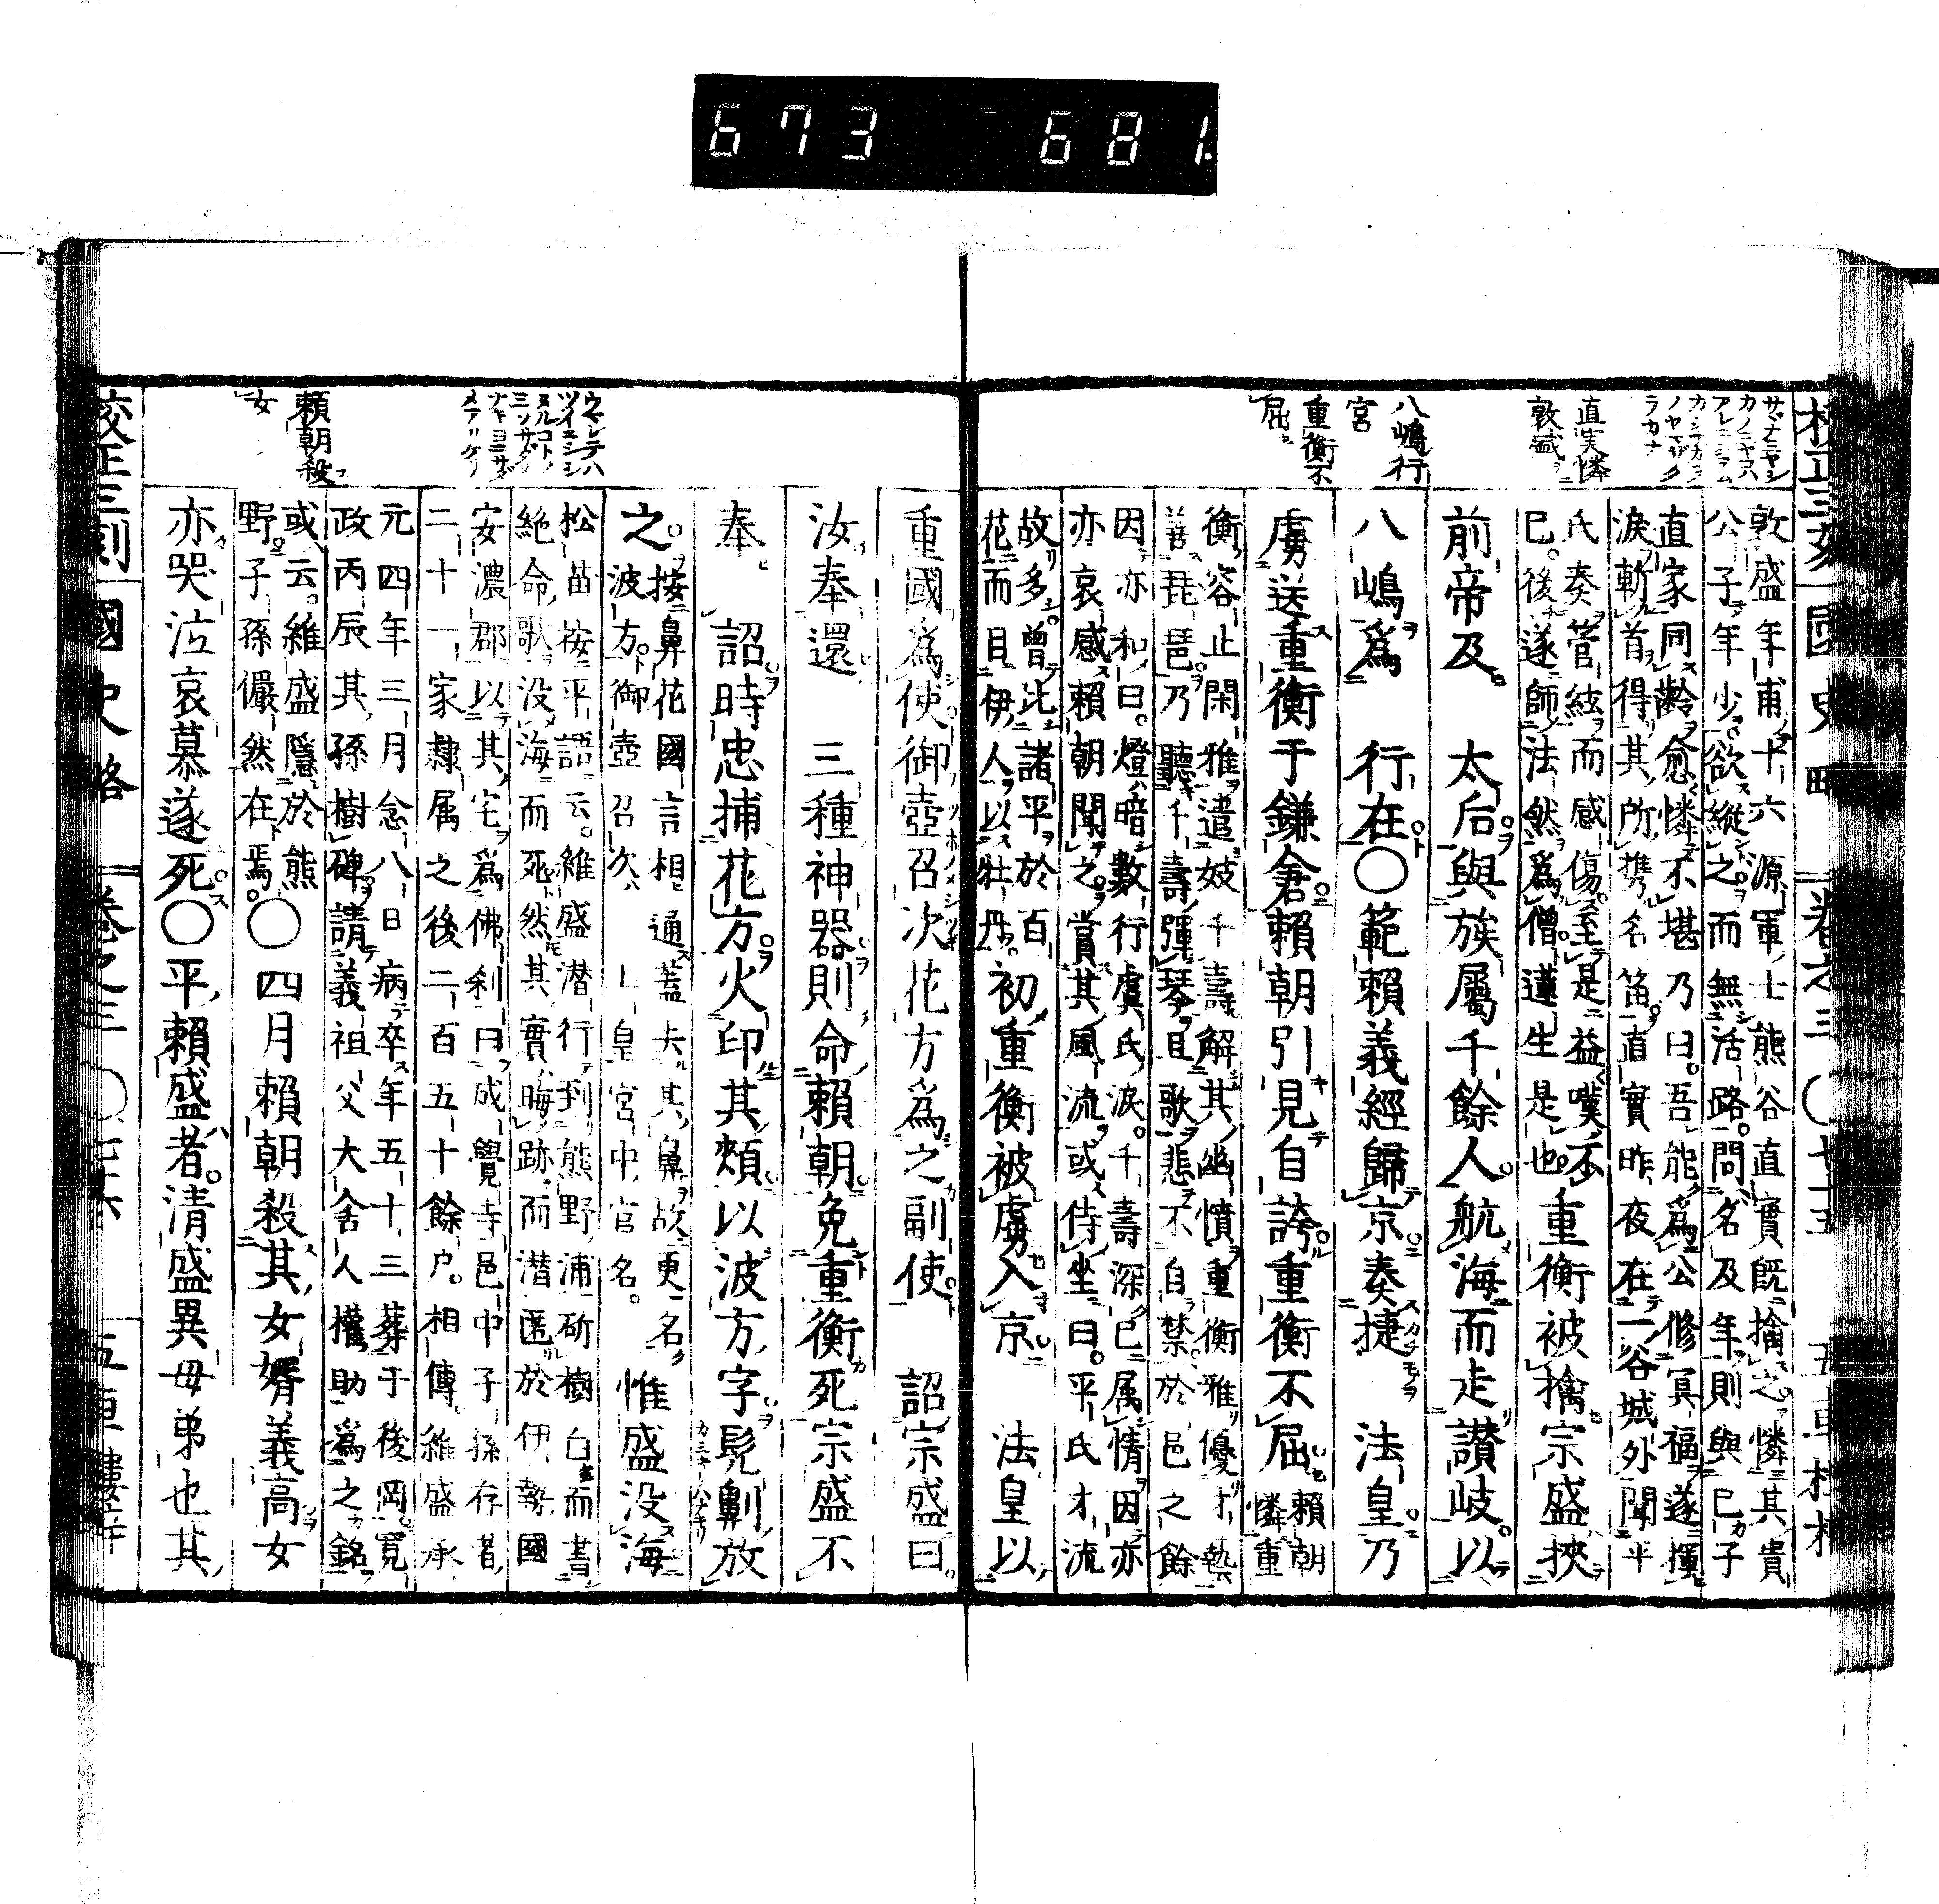 673 681.
校正三刻 國史略 卷之三 〇七十五 五車樓梓
直実憐
敦盛
八嶋行
宮
重衡不
屈
敦盛年甫十六源軍士熊谷直實既擒之憐其貴
公子年少欲縱之而無活路問名及年則與己子
直家同齡愈憐不堪乃曰吾能爲公修冥福遂揮
淚斬首得其所携名笛直實昨夜在一谷城外聞平
氏奏管絃而感傷至是益嘆不
已後遂師法然爲僧蓮生是也重衡被擒宗盛挾
前帝及 太后與族屬千餘人航海而走讃岐以
八嶋爲 行在〇範賴義經歸京奏捷 法皇乃
虜送重衡于鎌倉賴朝引見自誇重衡不屈賴朝
憐重
衡容止閑雅遣妓千壽解其幽憤重衡雅優才藝
善琵琶乃聽千壽彈琴且歌悲不自禁於邑之餘
因亦和曰燈暗數行虞氏淚千壽深已属情因亦
亦哀感賴朝聞之賞其風流或侍坐曰平氏才流
故多曾比諸平於百
花而目伊人以牡丹初重衡被虜入京 法皇以
重國爲使御壺召次花方爲之副使 詔宗盛曰
汝奉還 三種神器則命賴朝免重衡死宗盛不
奉 詔時忠捕花方火印其頰以波方字髠劓放
之按鼻花國言相通蓋失其鼻故更名
波方御壺召次ハ上皇宮中官名惟盛没海
松苗按平語云維盛潜行到熊野浦斫樹白而書
絶命歌没海而死然其實晦跡而潜匿於伊勢國
安濃郡以其宅爲佛刹曰成覺寺邑中子孫存者
二十一家隷属之後二百五十餘戸相傳維盛承
元四年三月念八日病卒年五十三葬于後岡寛
政丙辰其孫樹碑請義祖父大舍人權助爲之銘
或云維盛隱於熊
野子孫儼然在焉〇四月賴朝殺其女婿義高女
亦哭泣哀慕遂死〇平賴盛者清盛異母弟也其
賴朝殺
女
校正三刻 國史略 卷之三 〇 五車樓梓